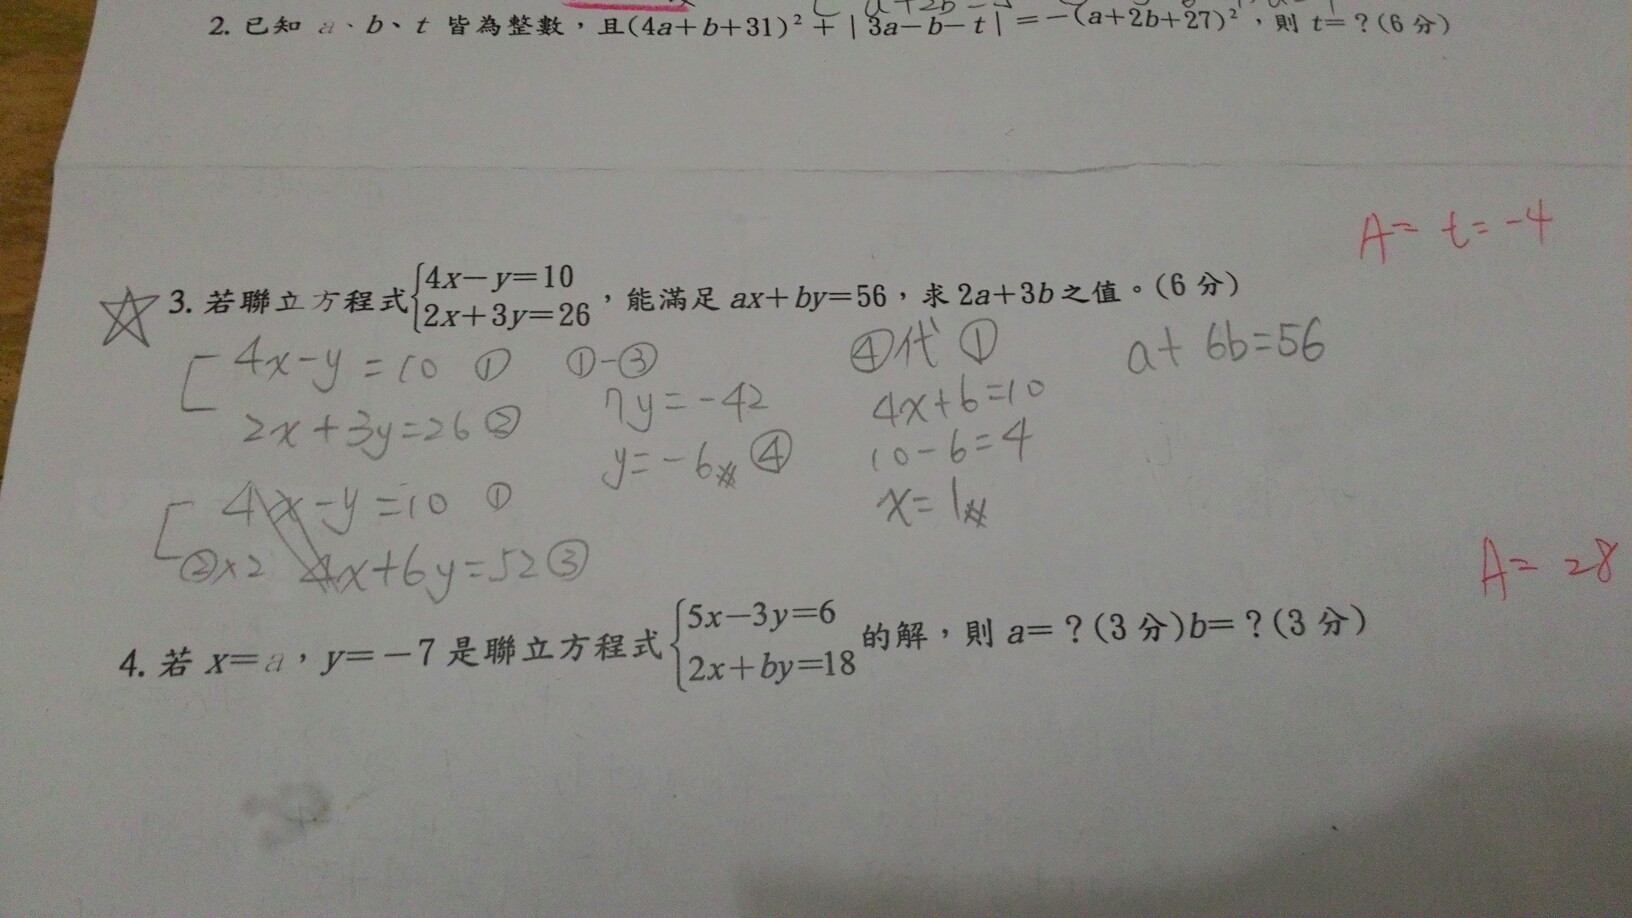 2. 已知 a、b、t 皆為整數，且(4a+b+31)²+|3a-b-t|=-(a+2b+27)²，則 t=？(6分)
A= t=-4
3. 若聯立方程式{4x-y=10
2x+3y=26，能滿足 ax+by=56，求 2a+3b 之值。(6分)
4x-y=10 ①
2x+3y=26 ②
4x-y=10 ①
②×2 4x+6y=52 ③
①-③
7y=-42
y=-6 ④
④代①
4x+6=10
10-6=4
x=1
a+6b=56
A= 28
4. 若 x=a，y=-7 是聯立方程式{5x-3y=6
2x+by=18 的解，則 a=？(3分)b=？(3分)